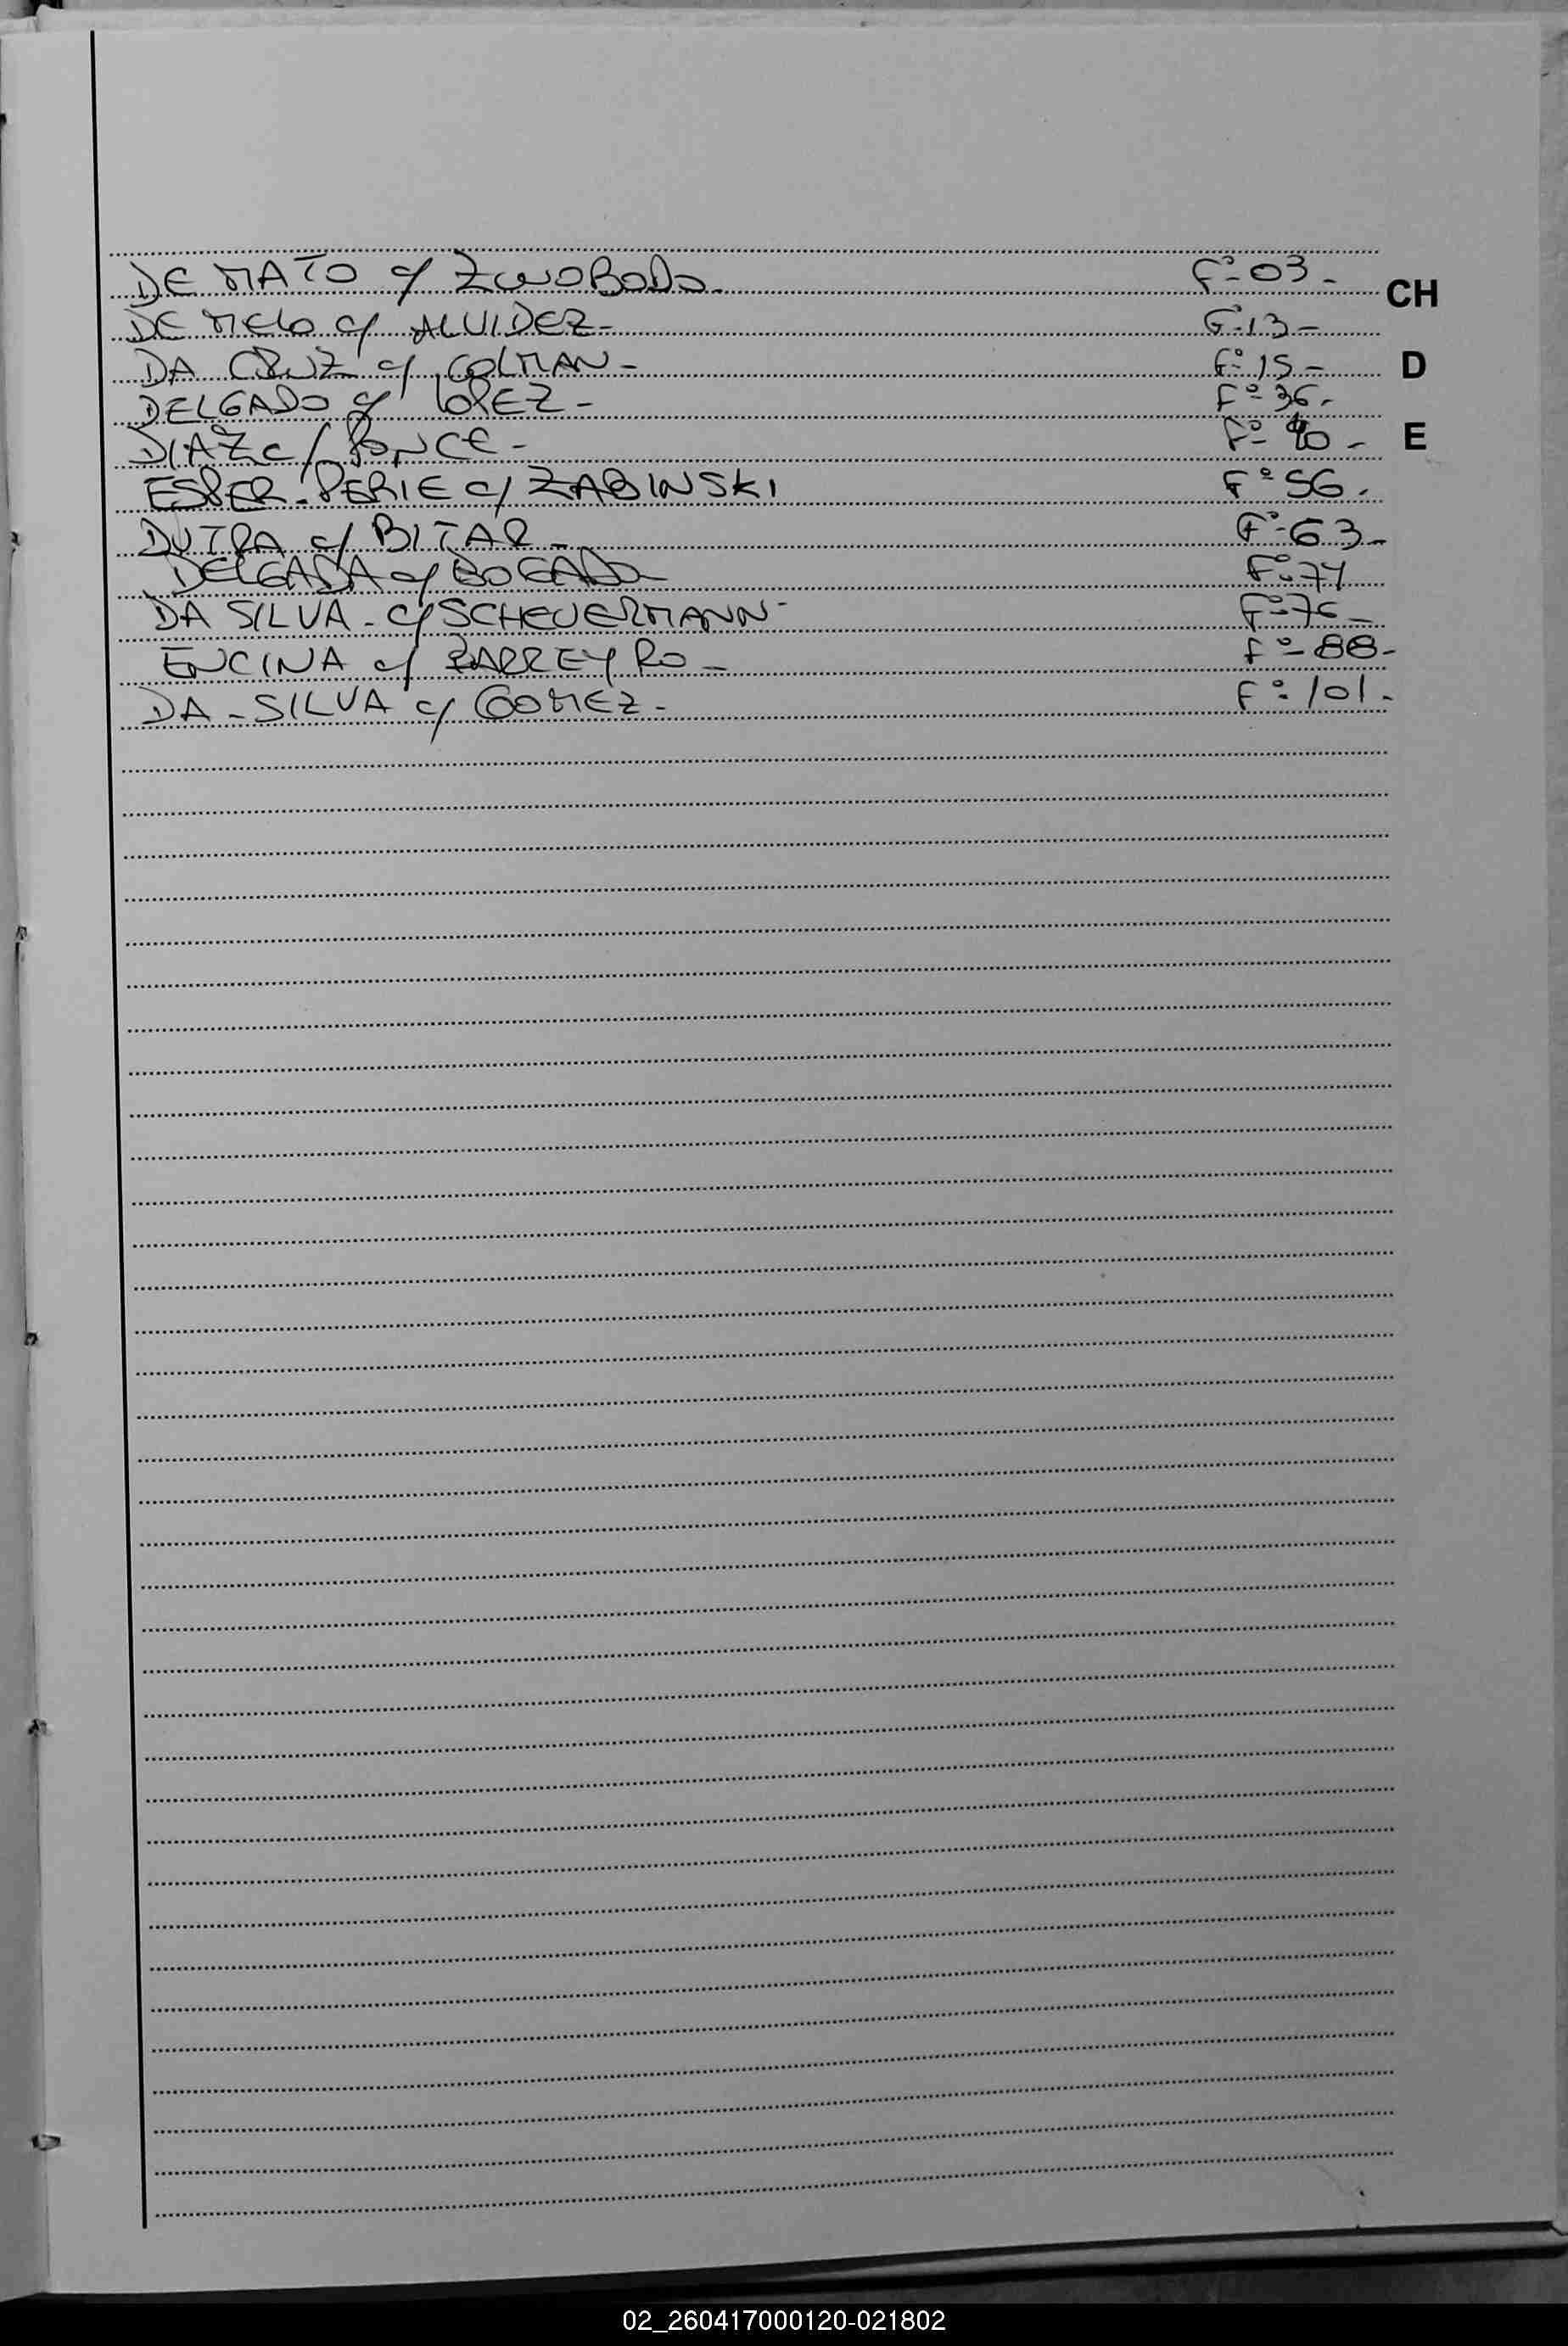 DE MATO c/ ZWOBODA. F:03-
CH
DE MELO c/ ALVIDEZ- F:13-
DA CRUZ c/ COLMAN- Fº:15-
D
DELGADO c/ LOPEZ- Fº-36.
DIAZ c/ PONCE- Fº-40-
E
ESPER-PERIE c/ ZABINSKI Fº-56.
DUTRA c/ BITAR- Fº-63-
DELGADA c/ BOGADO- Fº:74
DA SILVA- c/ SCHEUERMANN- Fº-76-
ENCINA c/ BARREYRO- Fº-88-
DA-SILVA c/ GOMEZ- Fº:101-
02_260417000120-021802